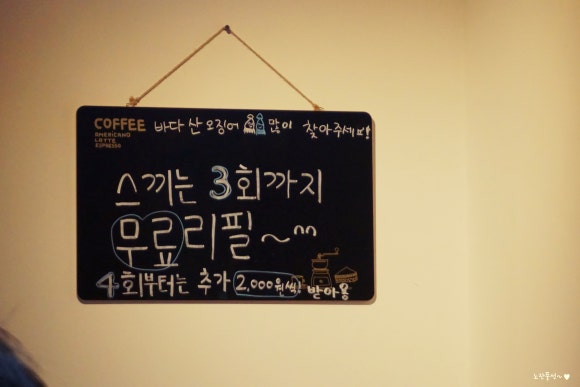 COFFEE
AMERICANO
LATTE
ESPRESSO
바다 산 오징어 많이 찾아주세요!
스끼는 3회까지
무료리필~^^
4회부터는 추가 2,000원씩! 받아용